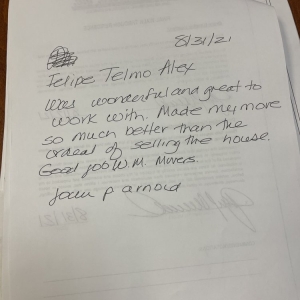 8/31/21
Felipe Telmo Alex
was wonderful and great to
work with. Made my more
so much better than the
ordeal of selling the house.
Good job W.M. Movers.
Joan P Arnold